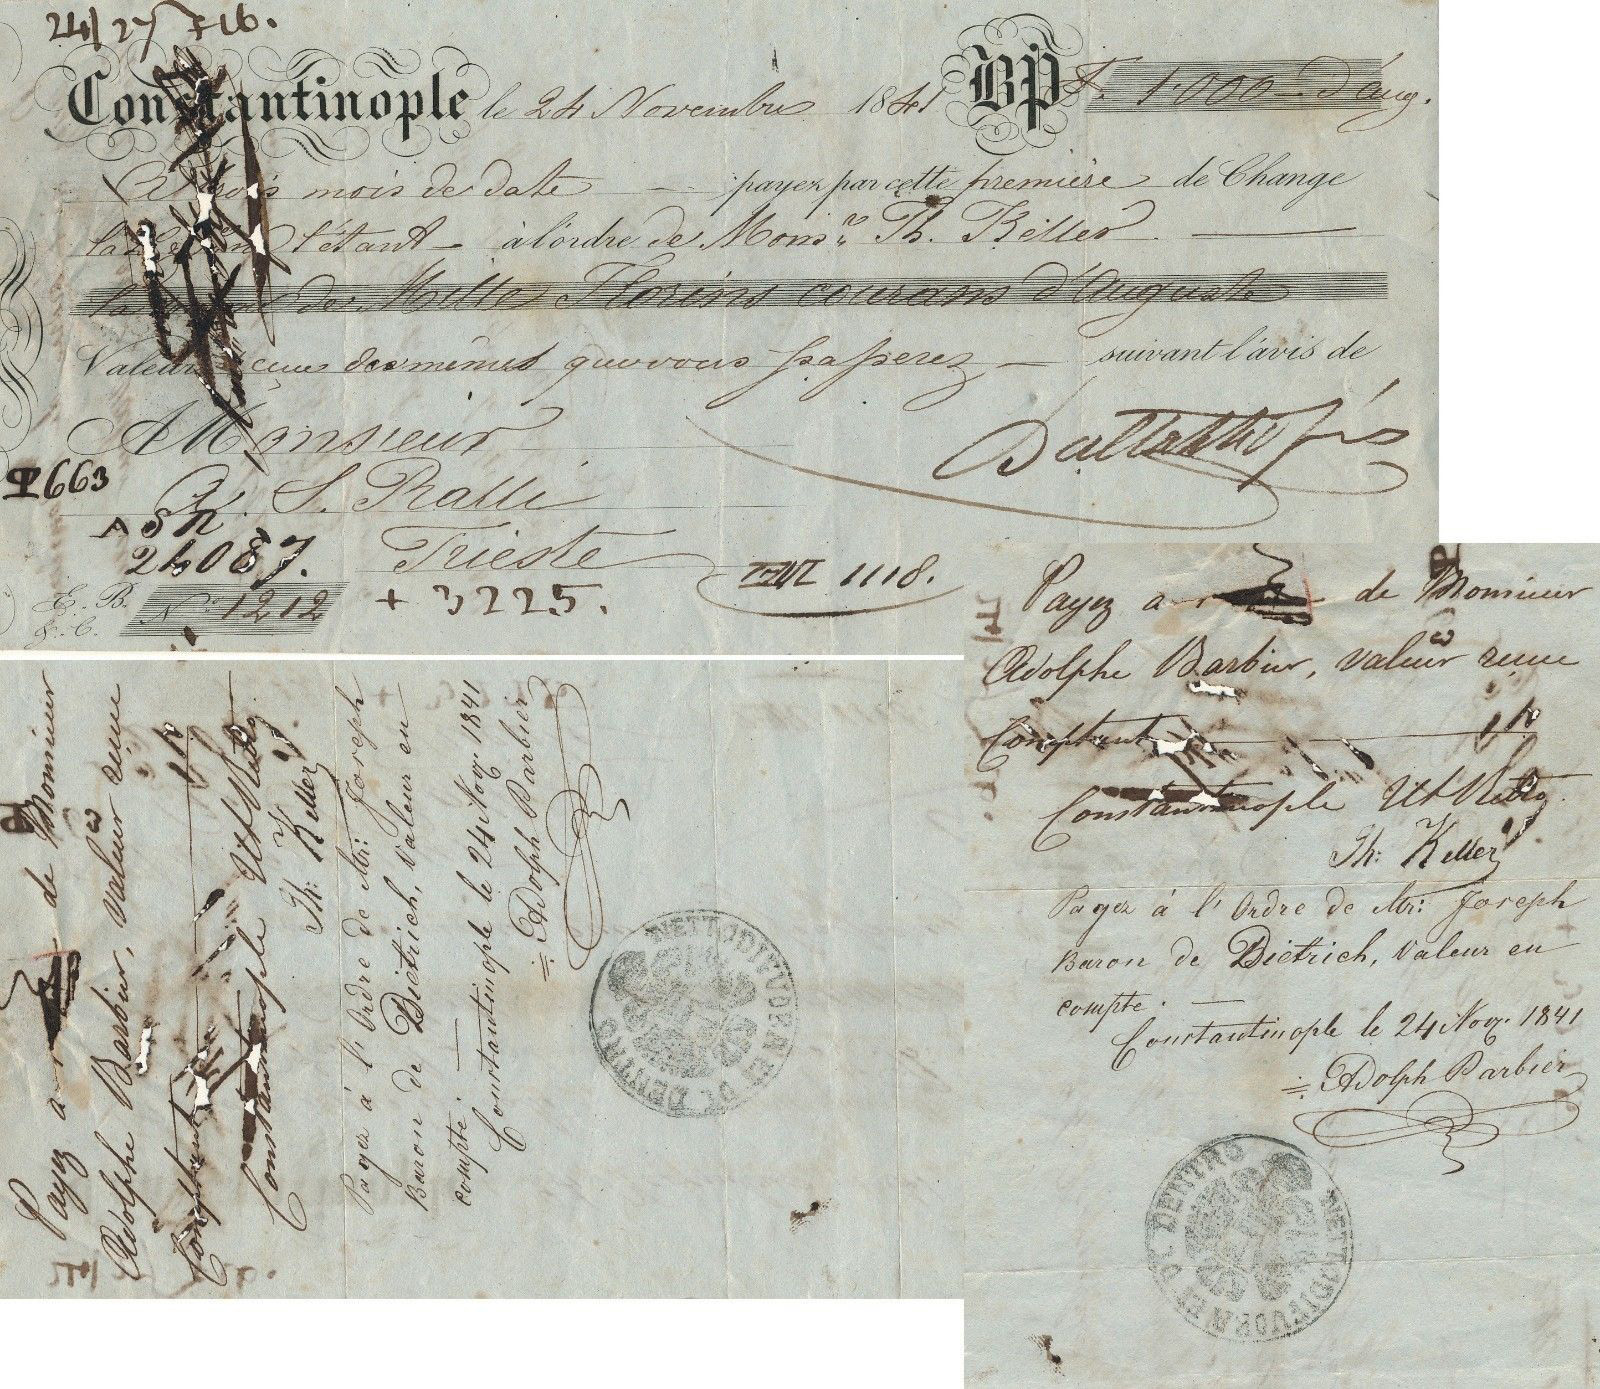 24/27 Feb.
Constantinople le 24 Novembre 1841 BP F. 1000 - d'Aug.
A trois mois de date — payez par cette première de Change
l'étant — à l'ordre de Monsr. Th. Keller
la de Mille Florins courans d'Auguste
Valeur reçue des mêmes que vous passerez — suivant l'avis de
A Monsieur
S. Ralli
663
24087. Trieste 1118.
E. B.
No. 1212 + 3225.
Payez a de Monsieur
Adolphe Barbier, valeur reçue
Comptant
Constantinople Ut Retro
Th: Keller
Payez à l'Ordre de Mr: Joseph
Baron de Dietrich, Valeur en
compte. —
Constantinople le 24 Nov. 1841
Adolph Barbier
NETTO DI FUORA E DI DENTRO
Payez a de Monsieur
Adolphe Barbier, valeur reçue
Comptant
Constantinople Ut Retro
Th: Keller
Payez à l'Ordre de Mr: Joseph
Baron de Dietrich, Valeur en
compte. —
Constantinople le 24 Nov. 1841
Adolph Barbier
NETTO DI FUORA E DI DENTRO